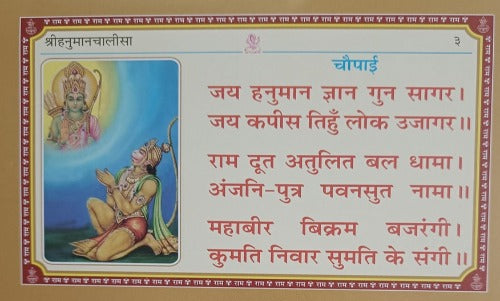 श्रीहनुमानचालीसा ३
चौपाई
जय हनुमान ज्ञान गुन सागर।
जय कपीस तिहुँ लोक उजागर॥
राम दूत अतुलित बल धामा।
अंजनि-पुत्र पवनसुत नामा॥
महाबीर बिक्रम बजरंगी।
कुमति निवार सुमति के संगी॥